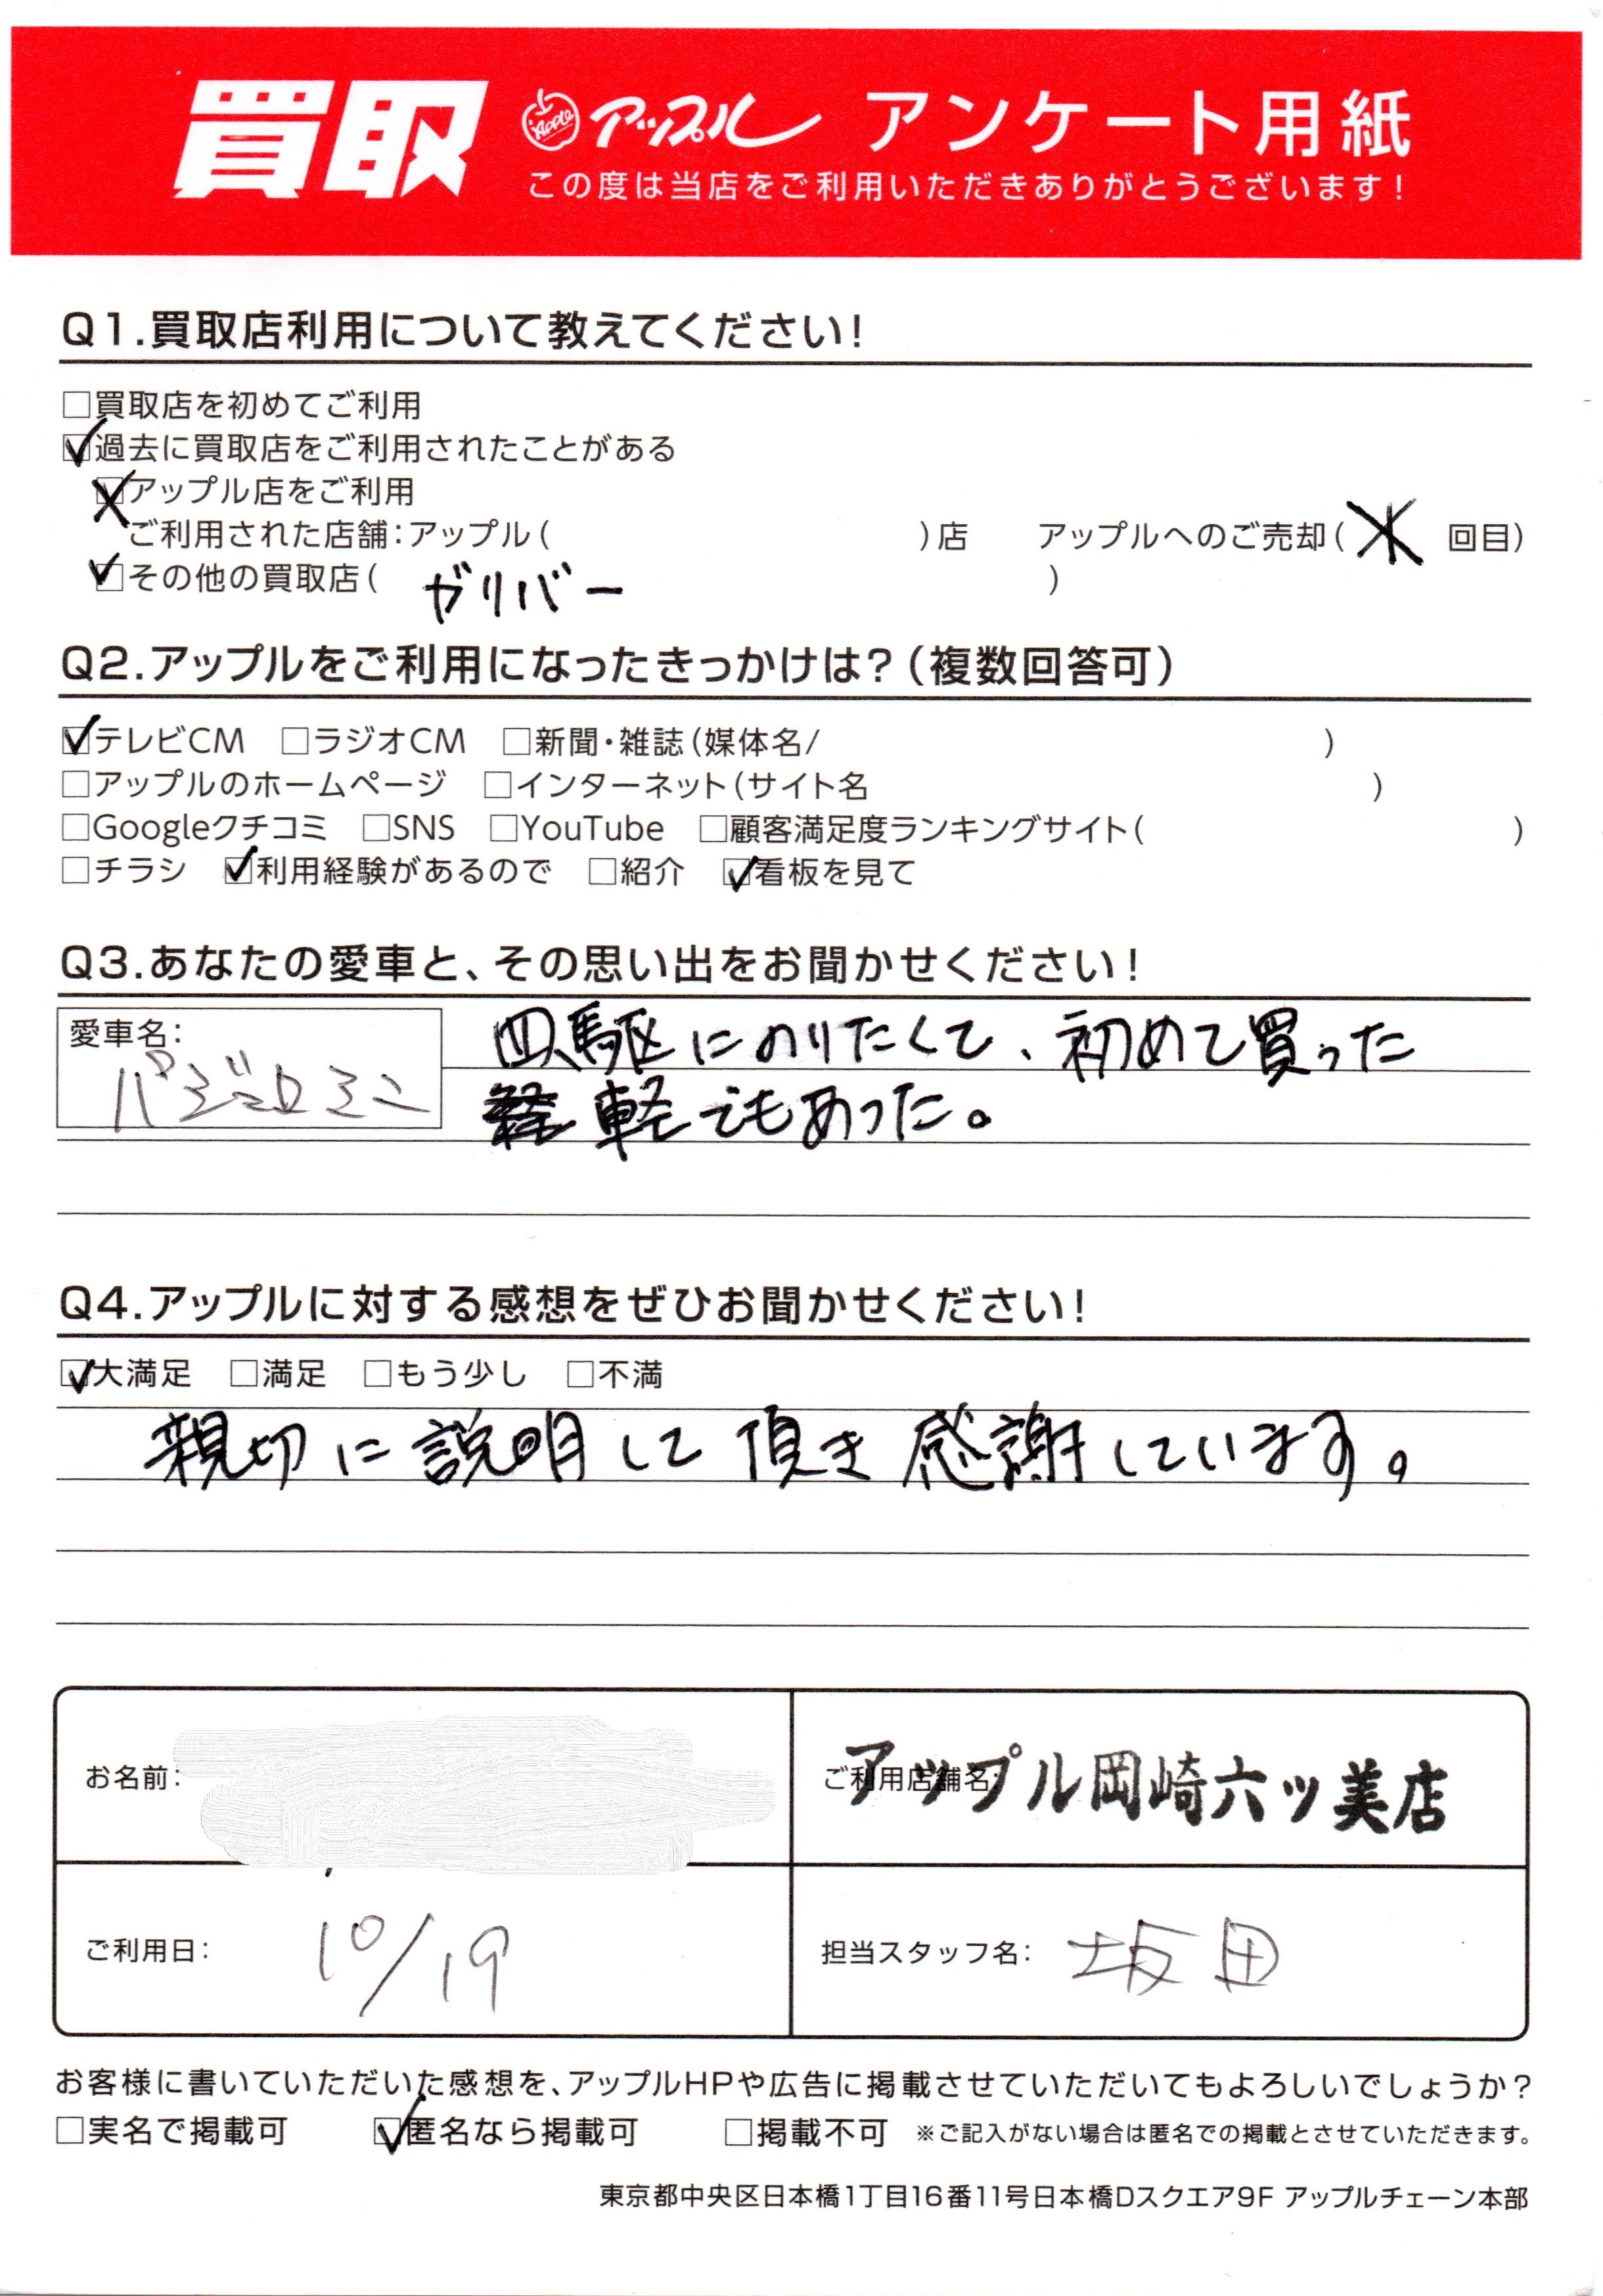 買取 Apple アップル アンケート用紙
この度は当店をご利用いただきありがとうございます!
Q1.買取店利用について教えてください!
□買取店を初めてご利用
☑過去に買取店をご利用されたことがある
☒アップル店をご利用
ご利用された店舗:アップル( )店 アップルへのご売却( 回目)
☑その他の買取店( ガリバー )
Q2.アップルをご利用になったきっかけは?(複数回答可)
☑テレビCM □ラジオCM □新聞・雑誌(媒体名/ )
□アップルのホームページ □インターネット(サイト名 )
□Googleクチコミ □SNS □YouTube □顧客満足度ランキングサイト( )
□チラシ ☑利用経験があるので □紹介 ☑看板を見て
Q3.あなたの愛車と、その思い出をお聞かせください!
愛車名: パジェロミニ
四駆にのりたくて、初めて買った
軽でもあった。
Q4.アップルに対する感想をぜひお聞かせください!
☑大満足 □満足 □もう少し □不満
親切に説明して頂き感謝しています。
お名前:
ご利用店舗名: アップル岡崎六ッ美店
ご利用日: 10/19
担当スタッフ名: 坂田
お客様に書いていただいた感想を、アップルHPや広告に掲載させていただいてもよろしいでしょうか?
□実名で掲載可 ☑匿名なら掲載可 □掲載不可 ※ご記入がない場合は匿名での掲載とさせていただきます。
東京都中央区日本橋1丁目16番11号日本橋Dスクエア9F アップルチェーン本部